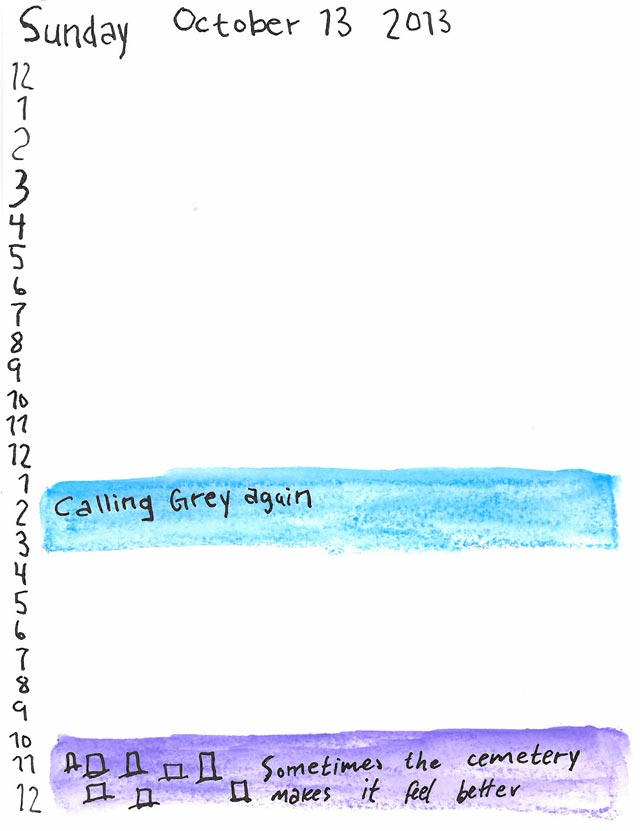 Sunday October 13 2013
12
1
2
3
4
5
6
7
8
9
10
11
12
1
Calling Grey again
2
3
4
5
6
7
8
9
10
11 Sometimes the cemetery
12 makes it feel better